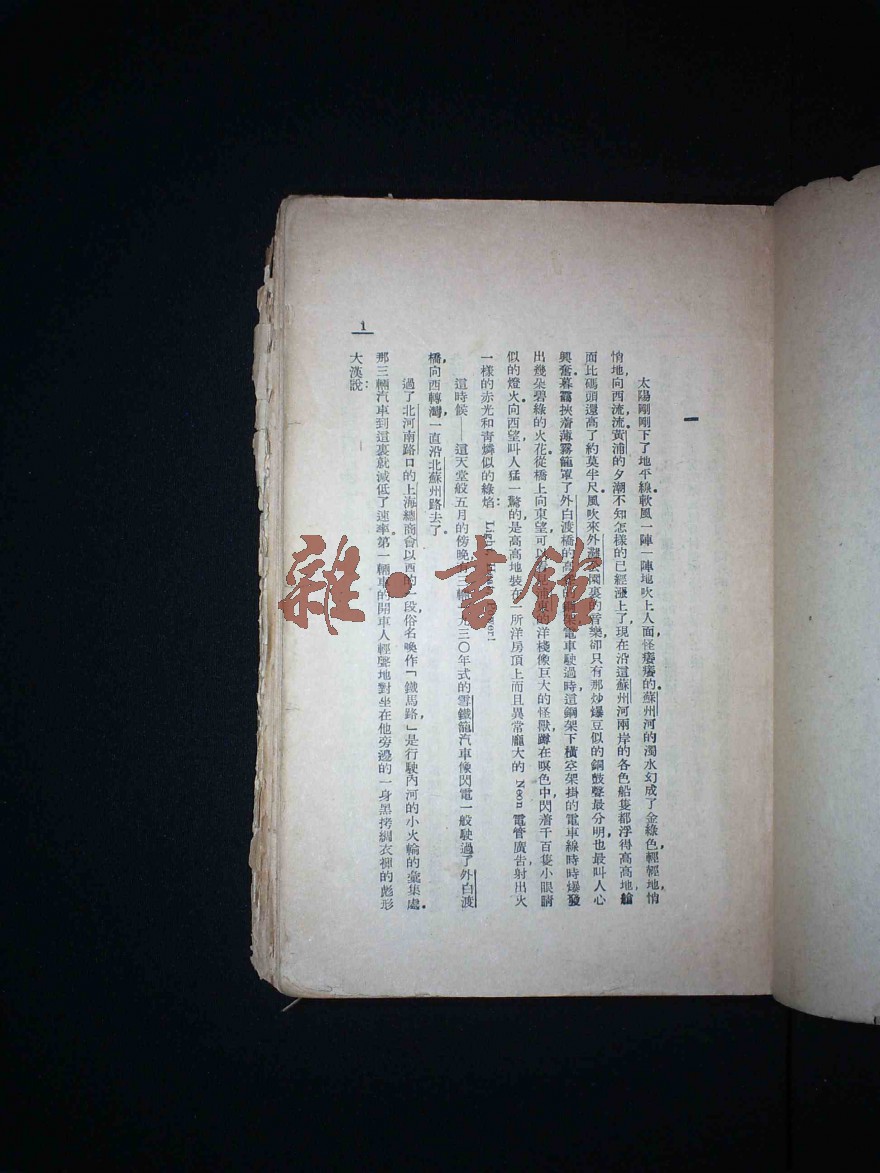 一
太陽剛剛下了地平線。軟風一陣一陣地吹上人面,怪癢癢的。蘇州河的濁水幻成了金綠色,輕輕地,悄
悄地,向西流,流。黃浦的夕潮不知怎樣的已經漲上了,現在沿這蘇州河兩岸的各色船隻都浮得高高地,艙
面比碼頭還高了約莫半尺。風吹來外灘公園裏的音樂,卻只有那炒爆豆似的銅鼓聲最分明,也最叫人心
興奮。暮靄挾着薄霧籠罩了外白渡橋的高聳的鋼架,電車駛過時,這鋼架下橫空架掛的電車線時時爆發
出幾朵碧綠的火花。從橋上向東望,可以看見浦東的洋棧像巨大的怪獸,蹲在暝色中,閃着千百隻小眼睛
似的燈火。向西望,叫人猛一驚的,是高高地裝在一所洋房頂上而且異常龐大的 Neon 電管廣告,射出火
一樣的赤光和青燐似的綠焰: Light, Heat, Power!
這時候——這天堂般五月的傍晚,有三輛一九三〇年式的雪鐵籠汽車像閃電一般駛過了外白渡
橋,向西轉灣,一直沿北蘇州路去了。
過了北河南路口的上海總商會以西的一段,俗名喚作「鐵馬路」,是行駛內河的小火輪的彙集處。
那三輛汽車到這裏就減低了速率。第一輛車的開車人輕聲地對坐在他旁邊的一身黑拷綢衣褲的彪形
大漢說:
1
雜·書館